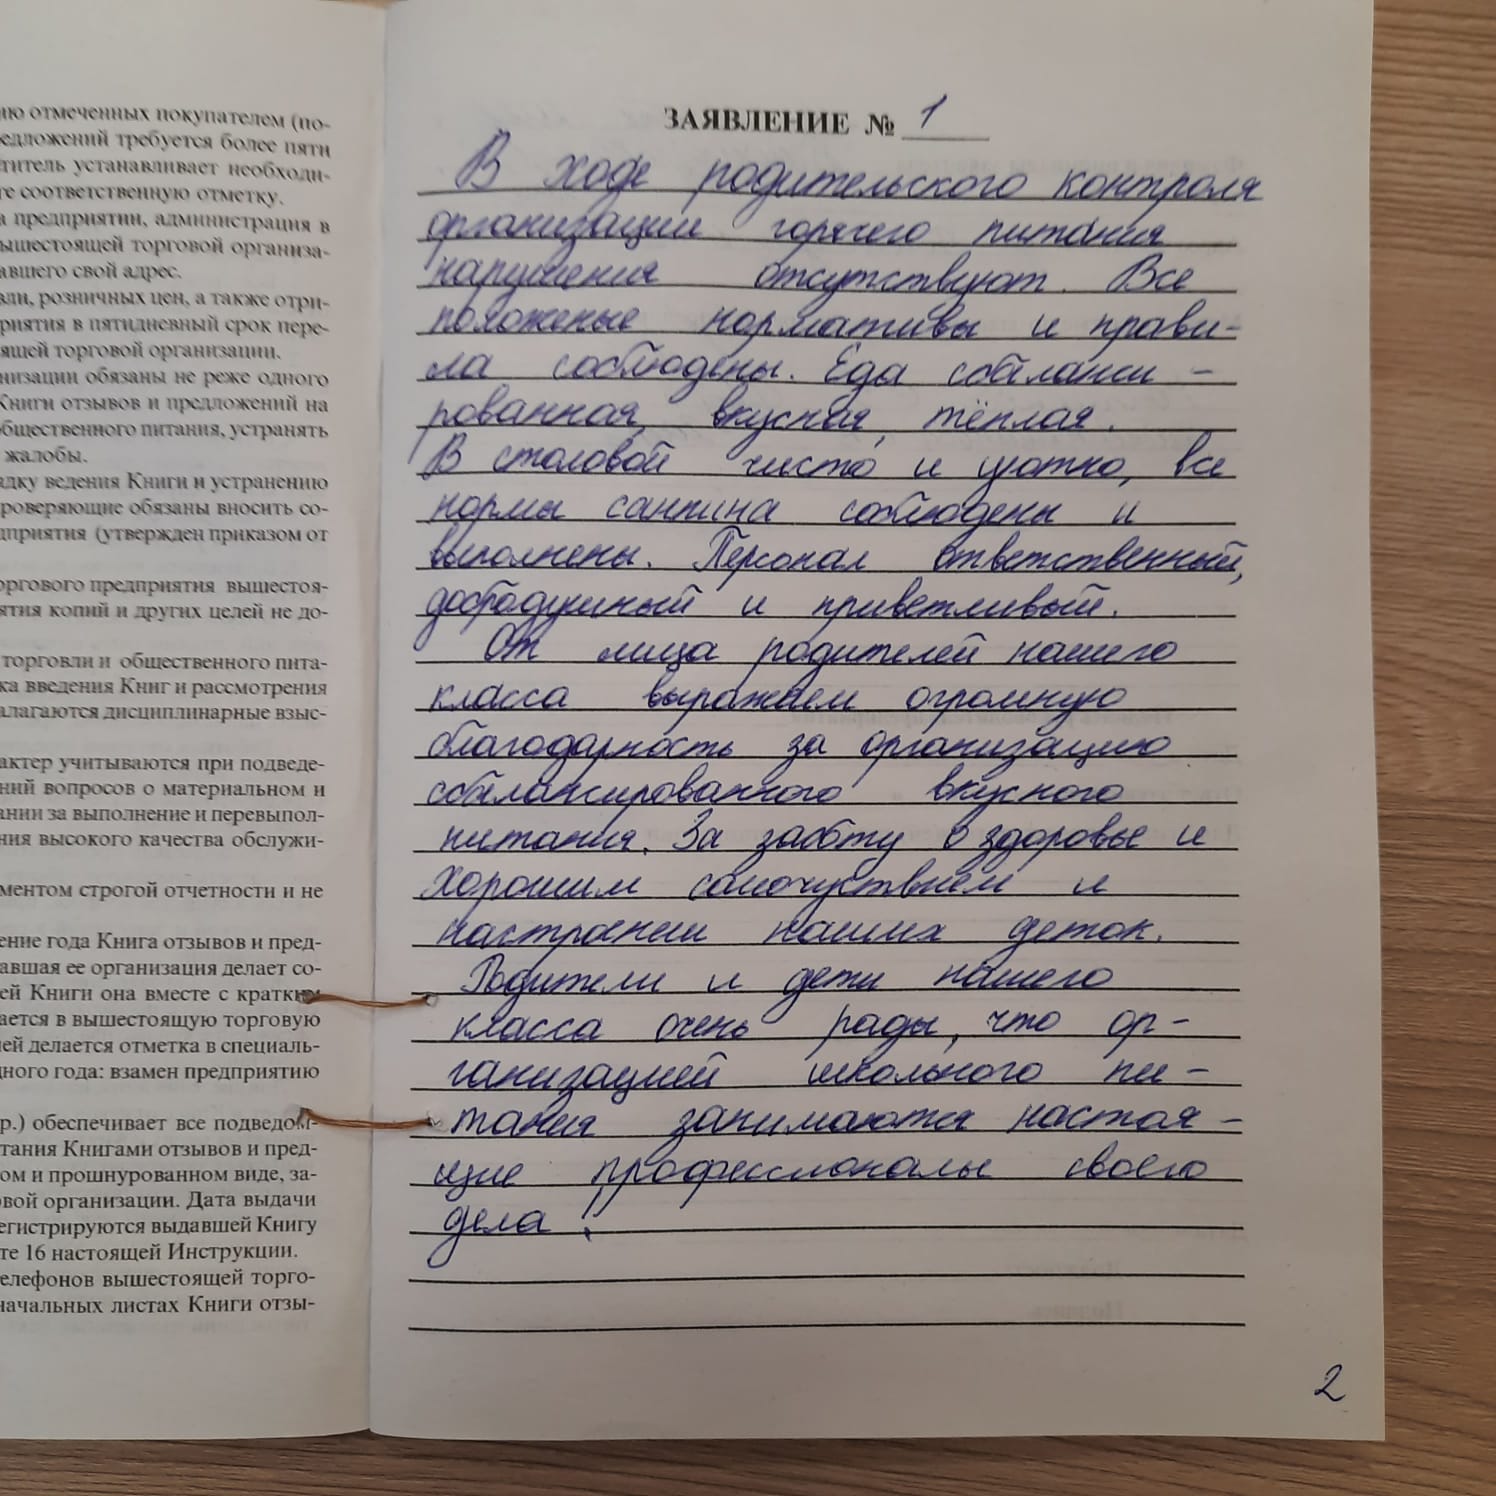 ию отмеченных покупателем (по-
редложений требуется более пяти
титель устанавливает необходи-
те соответственную отметку.
а предприятии, администрация в
вышестоящей торговой организа-
авшего свой адрес.
вли, розничных цен, а также отри-
риятия в пятидневный срок пере-
ящей торговой организации.
низации обязаны не реже одного
Книги отзывов и предложений на
общественного питания, устранять
жалобы.
адку ведения Книги и устранению
роверяющие обязаны вносить со-
дприятия (утвержден приказом от
оргового предприятия вышестоя-
ятия копий и других целей не до-
торговли и общественного пита-
ка введения Книг и рассмотрения
алагаются дисциплинарные взыс-
актер учитываются при подведе-
ний вопросов о материальном и
ании за выполнение и перевыпол-
ния высокого качества обслужи-
ментом строгой отчетности и не
ение года Книга отзывов и пред-
авшая ее организация делает со-
ей Книги она вместе с кратким
ается в вышестоящую торговую
ей делается отметка в специаль-
дного года: взамен предприятию
р.) обеспечивает все подведом-
тания Книгами отзывов и пред-
ом и прошнурованном виде, за-
овой организации. Дата выдачи
егистрируются выдавшей Книгу
те 16 настоящей Инструкции.
елефонов вышестоящей торго-
начальных листах Книги отзы-
ЗАЯВЛЕНИЕ № 1
В ходе родительского контроля
организации горячего питания
нарушения отсутствуют. Все
положеные нормативы и прави-
ла соблюдены. Еда сбаланси-
рованная, вкусная, тёплая.
В столовой чисто и уютно, все
нормы санпина соблюдены и
выполнены. Персонал ответственный,
добродушный и приветливый.
От лица родителей нашего
класса выражаем огромную
благодарность за организацию
сбалансированного вкусного
питания. За заботу о здоровье и
хорошим самочуствием и
настроении наших деток.
Родители и дети нашего
класса очень рады, что ор-
ганизацией школьного пи-
тания занимаются настоя-
щие профессионалы своего
дела!
2